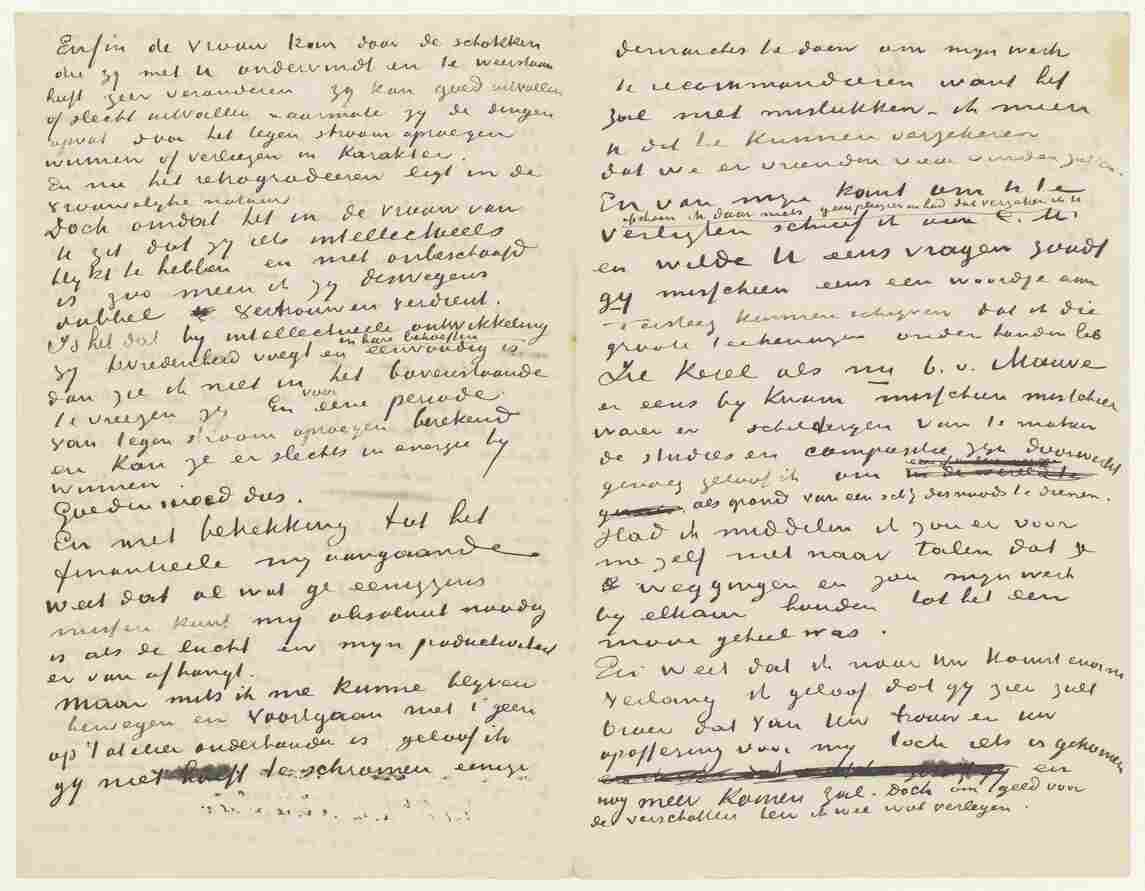 Enfin de vrouw kan door de schokken
die zij met U ondervindt en te weerstaan
heeft zeer veranderen zij kan goed uitvallen
of slecht uitvallen naarmate zij de dingen
opvat door het tegen stroom oproeijen
winnen of verliezen in karakter.
En nu het retrogradeeren ligt in de
vrouwelijke natuur
Doch omdat het in de vrouw van
U zit dat zij iets intellectueels
blijkt te hebben en niet onbeschaafd
is zoo meen ik zij deswegens
dubbel vertrouwen verdient.
Is het dat bij intellectueele ontwikkeling
in hare behoeften
zij tevredenheid voegt en eenvoudig is
dan zie ik niet in het bovenstaande
te vreezen zij En voor eene periode
van tegen stroom oproeijen berekend
en kan ze er slechts in energie bij
winnen.
Goeden moed dus.
En met betrekking tot het
financieele mij aangaande
weet dat al wat ge eenigzins
missen kunt mij absoluut noodig
is als de lucht en mijn productiviteit
er van afhangt.
Maar mits ik me kunne blijven
bewegen en voortgaan met 't geen
op 't atelier onderhanden is geloof ik
gij niet hoeft te schromen eenige
demarches te doen om mijn werk
te recommandeeren want het
zal niet mislukken – ik meen
U dat te kunnen verzekeren
dat we er vrienden voor vinden zullen.
En van mijn kant om U te
schoon ik daar niets geen plezier in had dat verzeker ik U
verligten schreef ik aan C.M.
en wilde U eens vragen zoudt
gij misschien eens een woordje aan
Tersteeg kunnen schrijven dat ik die
groote teekeningen onder handen heb
Zie kerel als nu b.v. Mauve
er eens bij kwam misschien misschien
waren er schilderijen van te maken
de studies en compositie zijn doorwerkt
genoeg geloof ik om
als grond van een schij desnoods te dienen.
Had ik middelen ik zou er voor
me zelf niet naar talen dat ze
weggingen en zou mijn werk
bij elkaar houden tot het een
mooi geheel was.
En weet dat ik naar Uw komst enorm
verlang ik geloof dat gij zien zult
broer dat van Uw trouw en Uw
opoffering voor mij toch iets is gekomen
en
nog meer komen zal. Doch om goed voor
de verschotten ben ik wee wat verlegen.